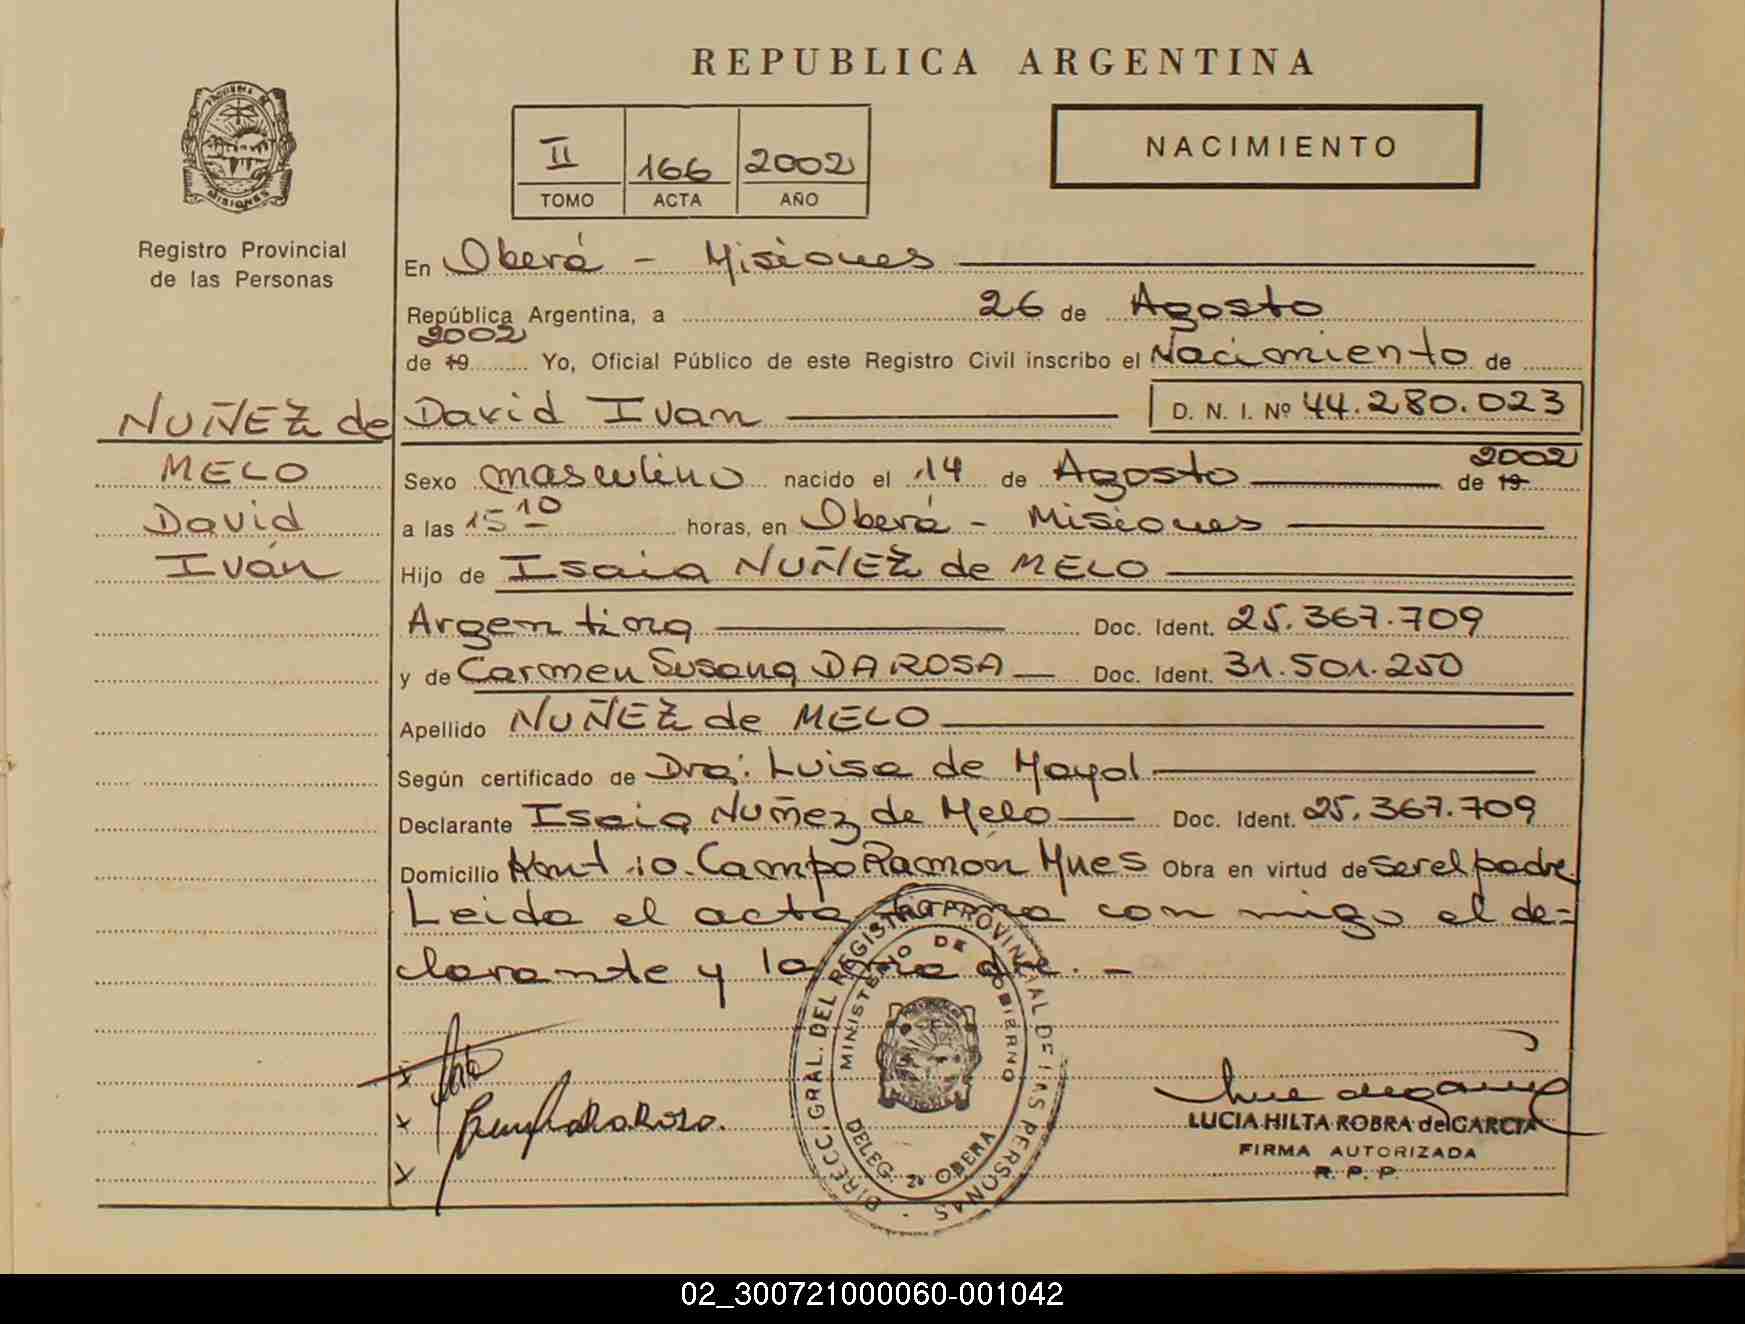 REPUBLICA ARGENTINA
II 166 2002
TOMO ACTA AÑO
NACIMIENTO
PROVINCIA DE
MISIONES
Registro Provincial
de las Personas
NUÑEZ de
MELO
David
Iván
En Oberá - Misiones
República Argentina, a 26 de Agosto
2002
de 19 Yo, Oficial Público de este Registro Civil inscribo el Nacimiento de
David Ivan D. N. I. Nº 44.280.023
2002
Sexo masculino nacido el 14 de Agosto de 19
a las 15 10 horas, en Oberá - Misiones
Hijo de Isaia NUÑEZ de MELO
Argentina Doc. Ident. 25.367.709
y de Carmen Susana DA ROSA Doc. Ident. 31.501.250
Apellido NUÑEZ de MELO
Según certificado de Dra: Luisa de Mayol
Declarante Isaia Nuñez de Melo Doc. Ident. 25.367.709
Domicilio .io. Campo Ramón Mnes Obra en virtud de ser el padre
Leida el acta firma con migo el de=
clarante y la ma dre. -
DIRECC. GRAL. DEL REGISTRO PROVINCIAL DE LAS PERSONAS -
MINISTERIO DE GOBIERNO
DELEG. 2ª OBERA
LUCIA HILTA ROBRA del GARCIA
FIRMA AUTORIZADA
R. P. P.
02_300721000060-001042